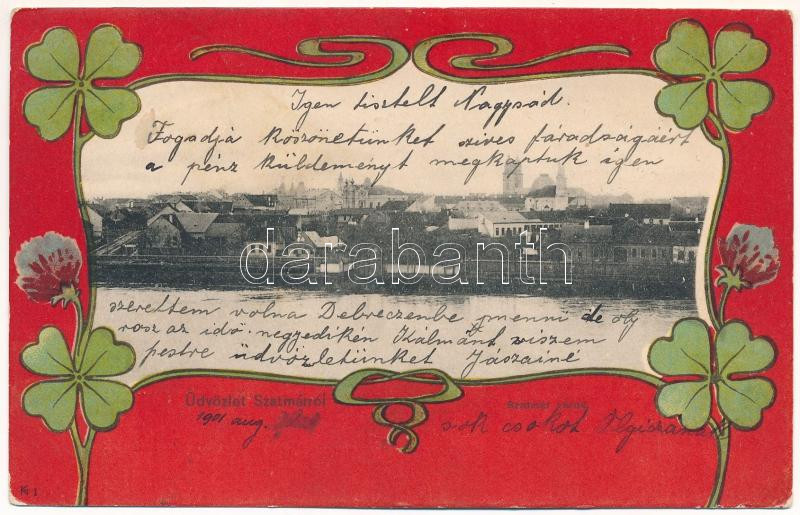 Igen tisztelt Nagysád.
Fogadja köszönetünket szives fáradságáért
a pénz küldeményt megkaptuk igen
darabanth
szerettem volna Debreczenbe menni de oly
rosz az idő. negyedikén Kálmánt viszem
pestre üdvözletünket Jászainé
Üdvözlet Szatmárról
Szatmár város
1901 aug.
sok csokot Ilgiczának
№ 1